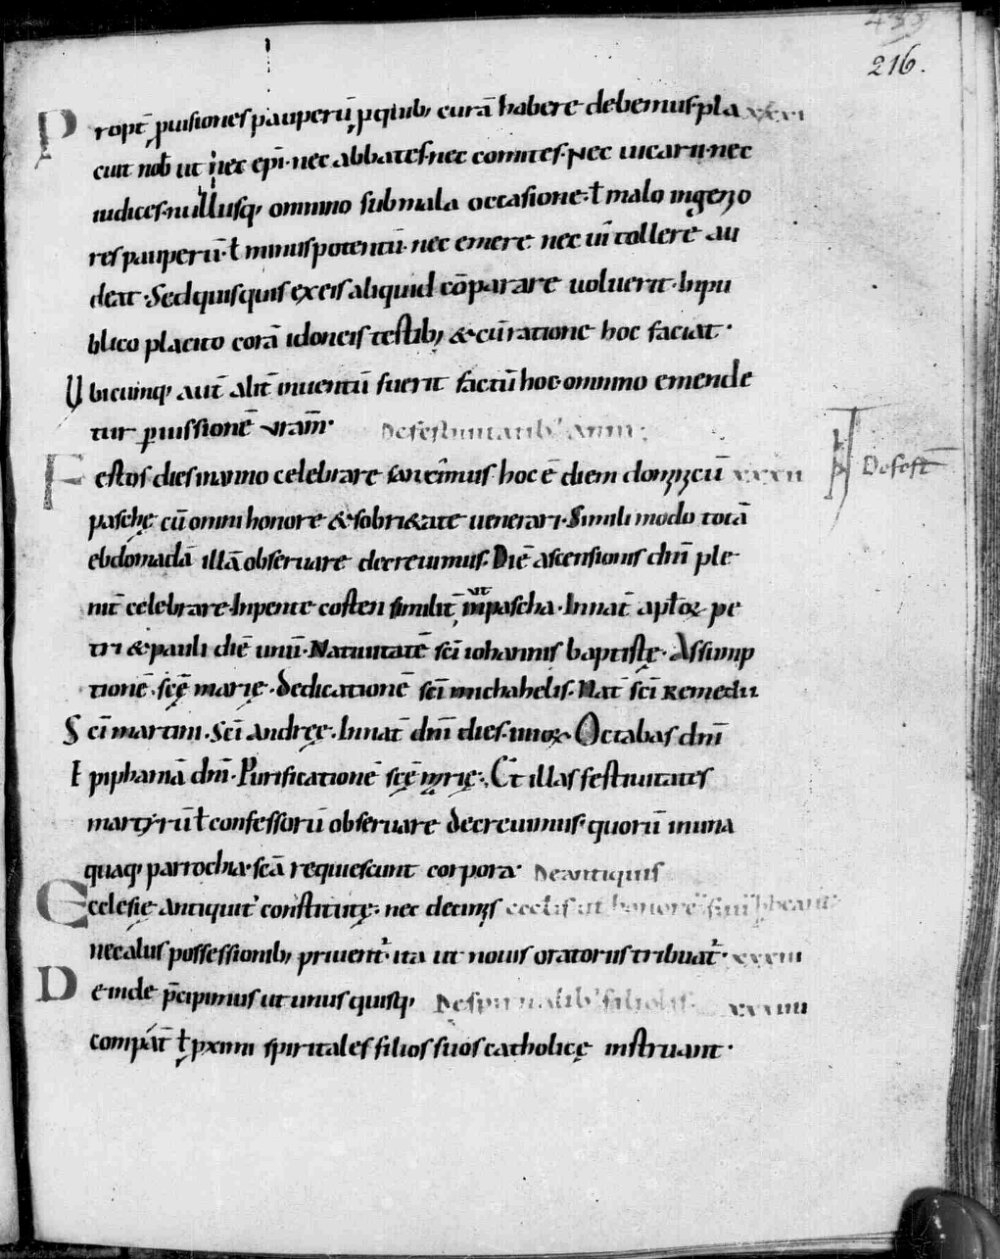 216.
Propt̄ puisiones pauperū p quib; curā habere debemus. pla xxxi
cuit nob ut nec epi. nec abbates. nec comites. nec uicarii. nec
iudices. nullusq; omnino sub mala occasione. ł malo ingenio
res pauperū. ł minus potentū. nec emere nec ui tollere au
deat. Sed quisquis ex eis aliquid cōparare uoluerit. In pu
blico placito corā idoneis testib; & cū ratione hoc faciat.
Vbicumq; aut̄ alit̄ inuentū fuerit factū hoc omnino emende
tur p iussionē vram̄.
Festos dies in anno celebrare hoc ē diem dominicū xxxii
paschę cū omni honore & sobri&ate uenerari. Simili modo totā
ebdomadā illā obseruare decreuimus. Diē ascensionis dn̄i ple
nit̄ celebrare. In pentecosten similit̄ ut in pascha. In nat̄ aplōꝝ pe
tri & pauli diē unū. Natiuitatē sc̄i iohannis baptistę. Assump
tionē scę̄ marię. Dedicationē sc̄i michahelis. Nat̄ sc̄i Remedii
Sc̄i martini. Sc̄i andręę. In nat̄ dn̄i dies. iiiior Octabas dn̄i
Epiphaniā dn̄i. Purificationē scę̄ marię. Et illas festiuitates
martyrū ł confessorū obseruare decreuimus. quorū in una
quaq; parrochia. scā requiescunt corpora. De antiquis
Ecclesię antiquit' constitutę. nec decimis ecclis ut honore
nec aliis possessionib; priuent'. ita ut nouis oratoriis tribuat'. xxxiii
Deinde p̄cipimus ut unusquisq; xxxiiii
compat̄ ł pximi spiritales filios suos catholicę instruant.
De fest̄